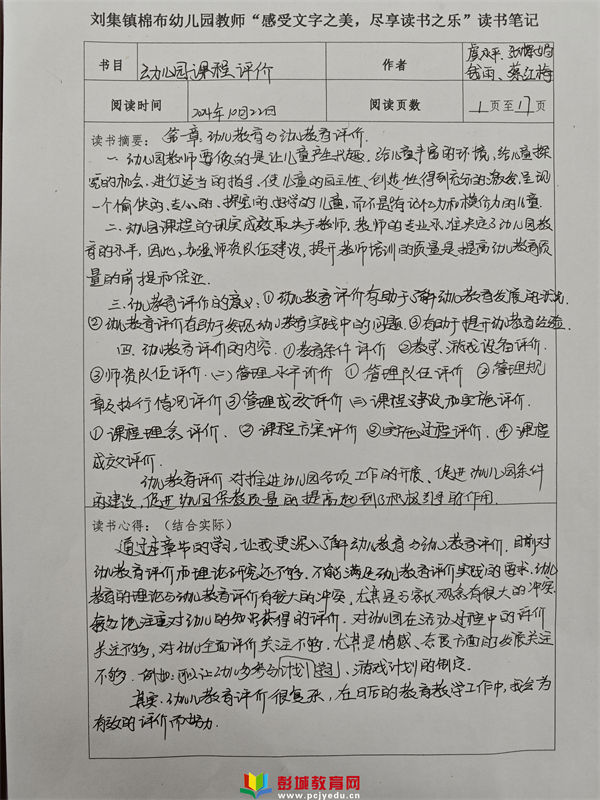 刘集镇棉布幼儿园教师“感受文字之美，尽享读书之乐”读书笔记
书目
幼儿园课程评价
作者
虞永平、张
钱雨、蔡红梅
阅读时间
2024年10月22日
阅读页数
1页至17页
读书摘要：第一章 幼儿教育与幼儿教育评价.
一、幼儿园教师要做的是让儿童产生兴趣，给儿童丰富的环境，给儿童探
究的机会，进行适当的指导，使儿童的自主性、创造性得到充分的激发，呈现
一个愉快的、专心的、探究的、好学的儿童，而不是跨记忆力和模仿力的儿童.
二、幼儿园课程的现实成效取决于教师，教师的专业水准决定了幼儿园教
育的水平，因此，加强师资队伍建设，提升教师培训的质量是提高幼儿教育质
量的前提和保证.
三、幼儿教育评价的意义：①幼儿教育评价有助于了解幼儿教育发展的状况
②幼儿教育评价有助于发现幼儿教育实践中的问题③有助于提升幼儿教育经验.
四、幼儿教育评价的内容.①教育条件评价 ②教学、游戏设备评价.
③师资队伍评价.(二)管理水平评价 ①管理队伍评价 ②管理规
章及执行情况评价③管理成效评价(三)课程建设和实施评价.
①课程理念评价.②课程方案评价③实施过程评价.④课程
成效评价.
幼儿教育评价对推进幼儿园各项工作的开展、促进幼儿园条件
的建设，促进幼儿园保教质量的提高起到了积极引导的作用.
读书心得：（结合实际）
通过本章节的学习，让我更深入了解幼儿教育与幼儿教育评价.目前对
幼儿教育评价的理论研究还不够，不能满足幼儿教育评价实践的需求.幼儿
教育的理论与幼儿教育评价有较大的冲突，尤其是与家长观念有很大的冲突.
较多地注重对幼儿的知识获得的评价.对幼儿园在活动过程中的评价
关注不够，对幼儿全面评价关注不够.尤其是情感、方面的发展关注
不够.例如：可以让幼儿多参与计划、游戏计划的制定.
其实，幼儿教育评价很复杂，在日后的教育教学工作中，我会为
有效的评价而努力.
彭城教育网
www.pcjyedu.cn